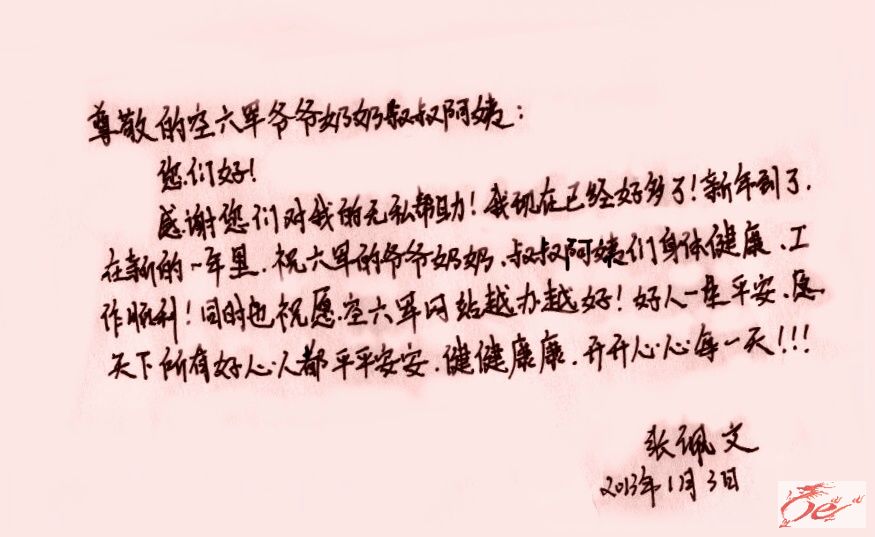 尊敬的空六军爷爷奶奶叔叔阿姨：
您们好！
感谢您们对我的无私帮助！我现在已经好多了！新年到了，
在新的一年里，祝六军的爷爷奶奶、叔叔阿姨们身体健康、工
作顺利！同时也祝愿空六军网站越办越好！好人一生平安，愿
天下所有好心人都平平安安、健健康康、开开心心每一天！！！
张佩文
2013年1月3日